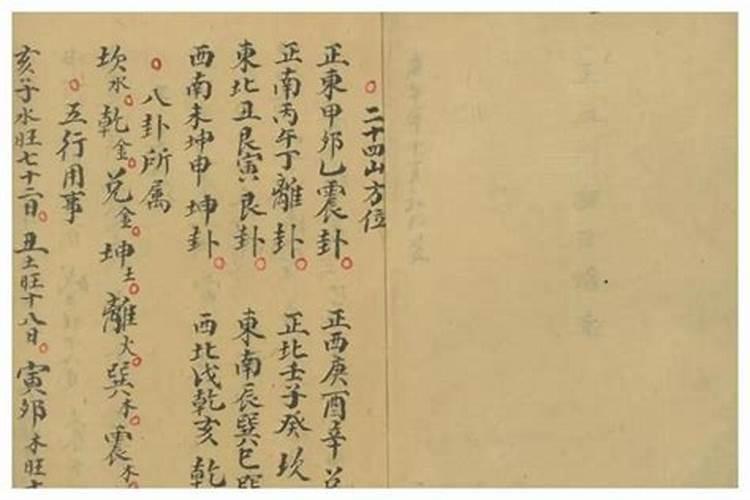 二十四山方位
正東甲卯乙震卦 正西庚酉辛
正南丙午丁離卦 正北壬子癸坎
東北丑艮寅艮卦 東南辰巽巳巽
西南未坤申坤卦 西北戌乾亥乾
八卦所属
坎水乾金兑金坤土離火巽木震木
五行用事
亥子水旺七十二日丑土旺十八日寅卯木旺